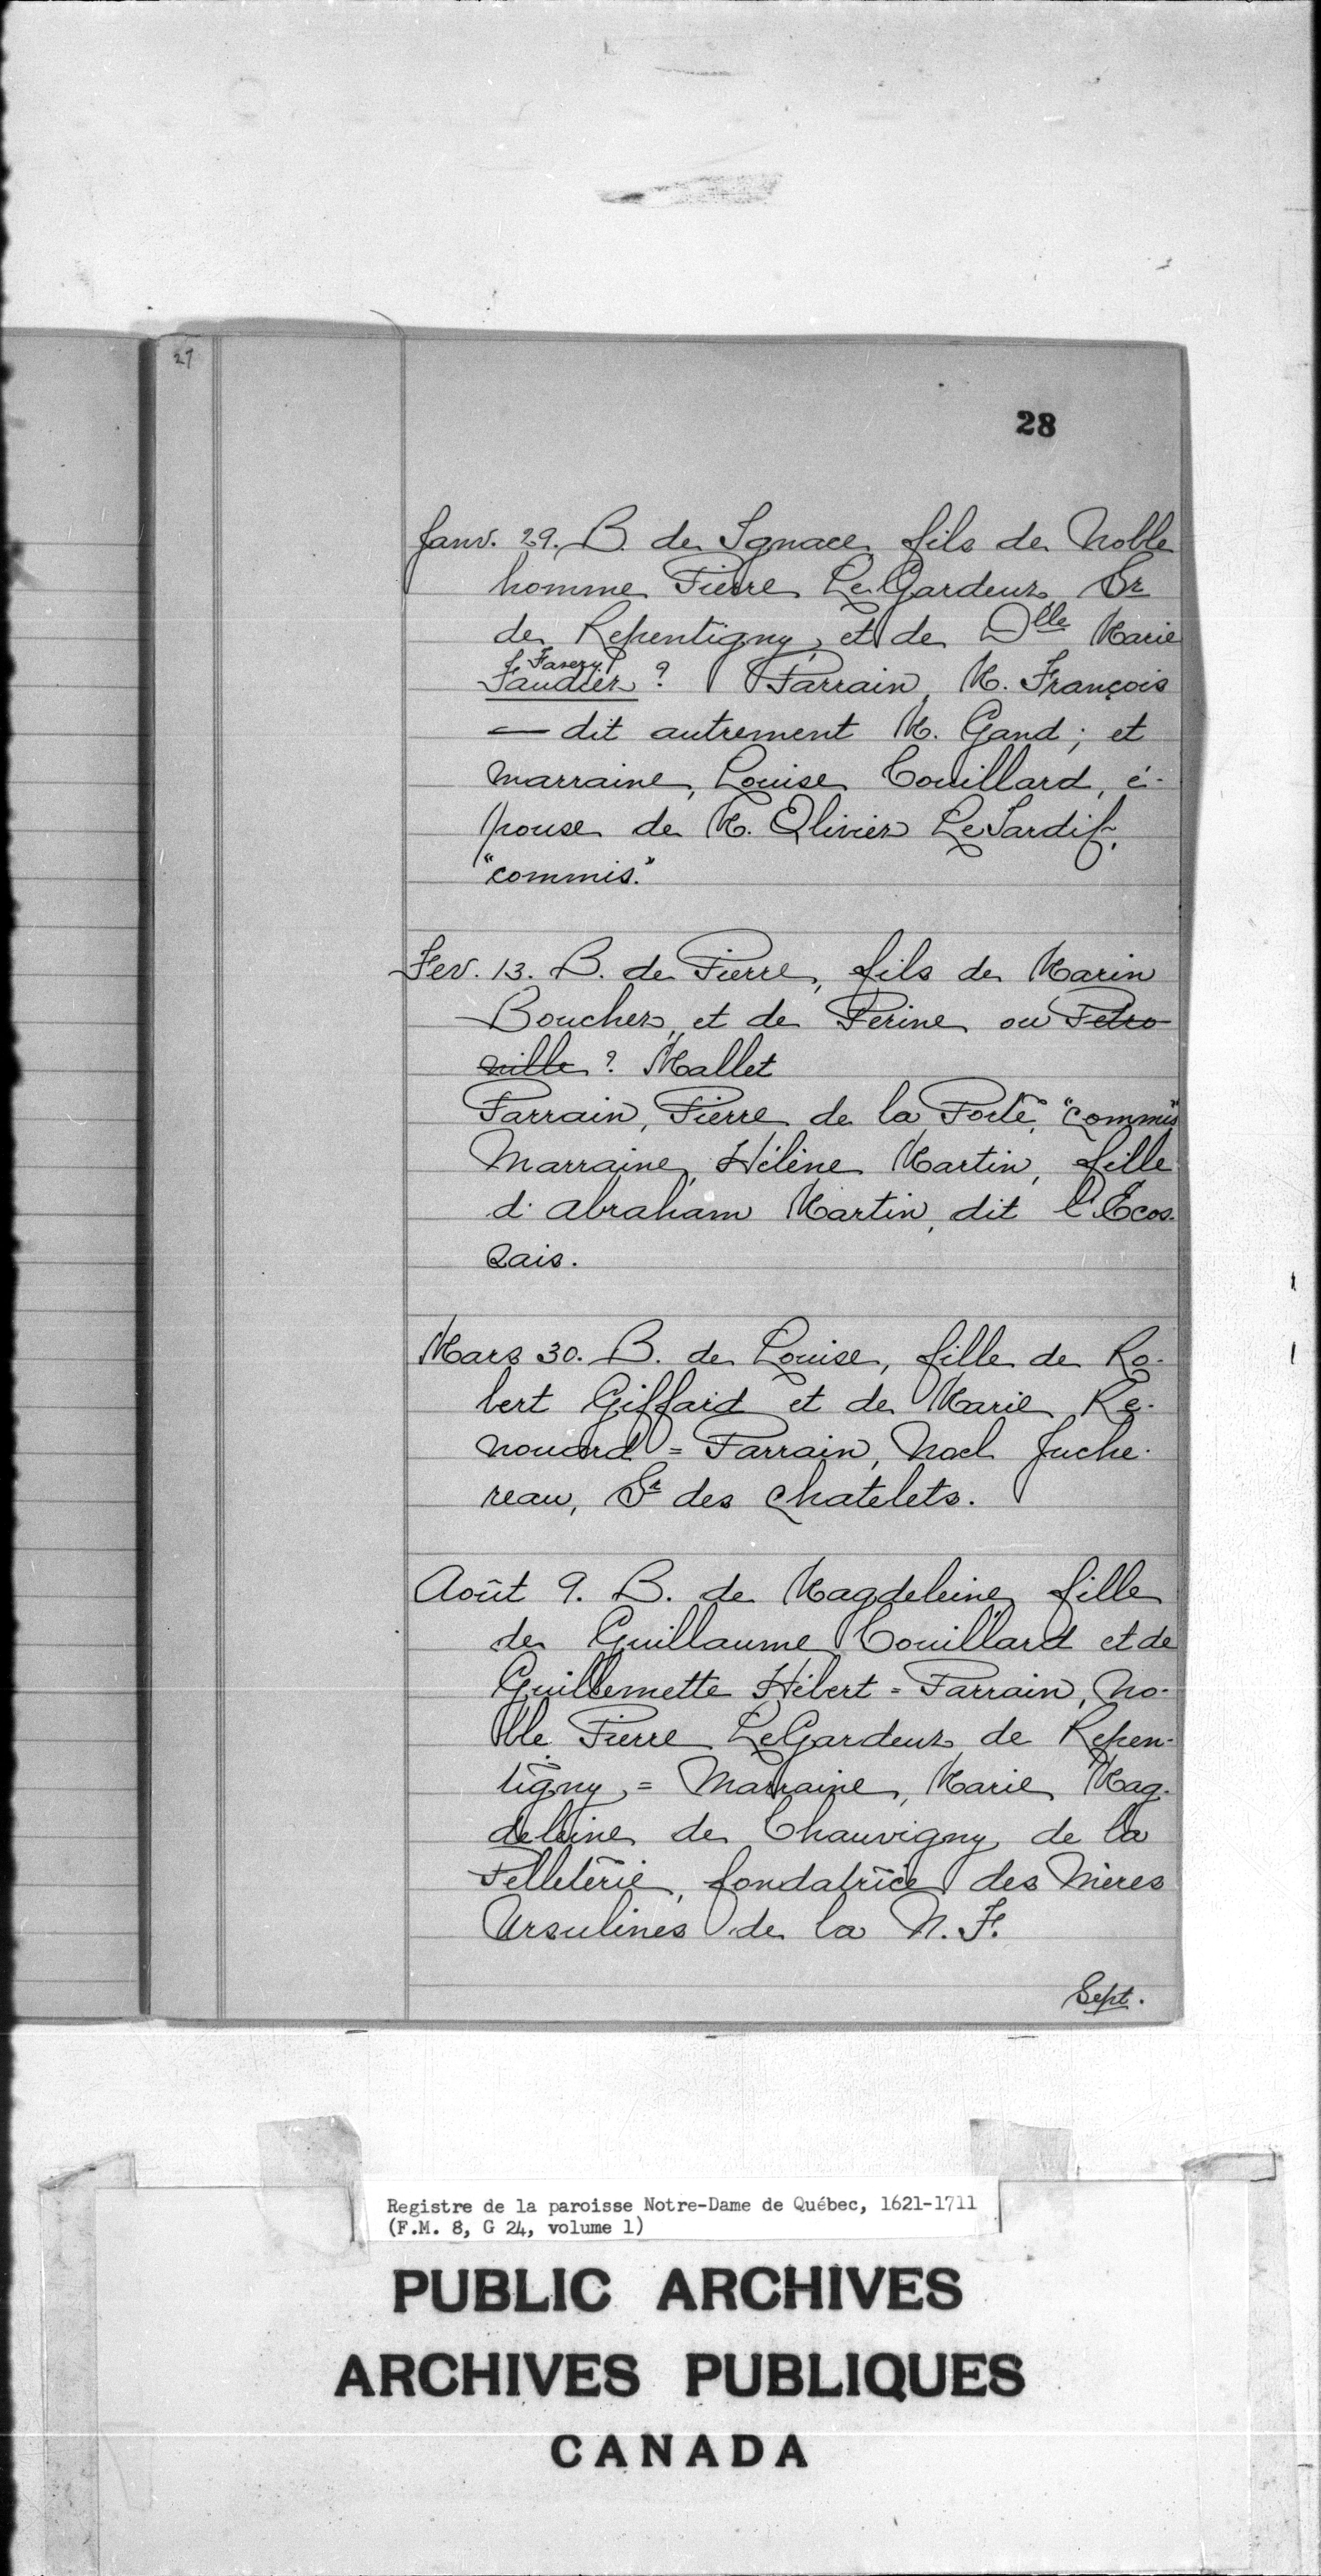 27
28
Janv. 29. B. de Ignace, fils de Noble
homme Pierre LeGardeur, Sr
de Repentigny, et de Dlle Marie
Favery
Faudier ? Parrain, M. François
— dit autrement M. Gand ; et
marraine, Louise Couillard, é-
pouse de M. Olivier LeTardif,
"commis."
Fev. 13. B. de Pierre, fils de Marin
Boucher, et de Périne ou Petro
nille ? Mallet
Parrain, Pierre de la Porte, "commis"
Marraine, Hélène Martin, fille
d'Abraham Martin, dit l'Ecos-
sais.
Mars 30. B. de Louise, fille de Ro-
bert Giffard et de Marie Re-
nouard = Parrain, Noel Juche-
reau, Sr des Chatelets.
Août 9. B. de Magdeleine, fille
de Guillaume Couillard et de
Guillemette Hébert = Parrain, No-
ble Pierre LeGardeur de Repen-
tigny = Marraine, Marie Mag-
deleine de Chauvigny, de la
Pelleterie, fondatrice des Mères
Ursulines de la N. F.
Sept.
Registre de la paroisse Notre-Dame de Québec, 1621-1711
(F.M. 8, G 24, volume 1)
PUBLIC ARCHIVES
ARCHIVES PUBLIQUES
CANADA